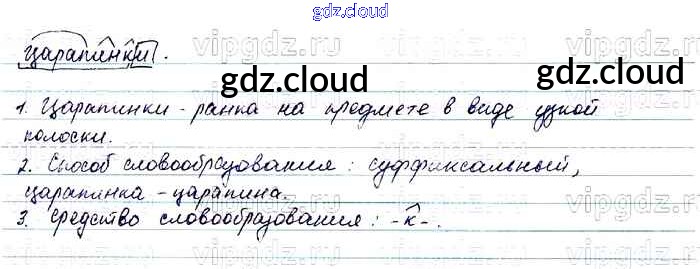 gdz.cloud
царапинки.
gdz.cloud gdz.cloud
1. Царапинки - ранка на предмете в виде узкой
полоски.
2. Способ словообразования: суффиксальный,
царапинка - царапина.
3. Средство словообразования: -к-.
vipgdz.ru vipgdz.ru vipgdz.ru